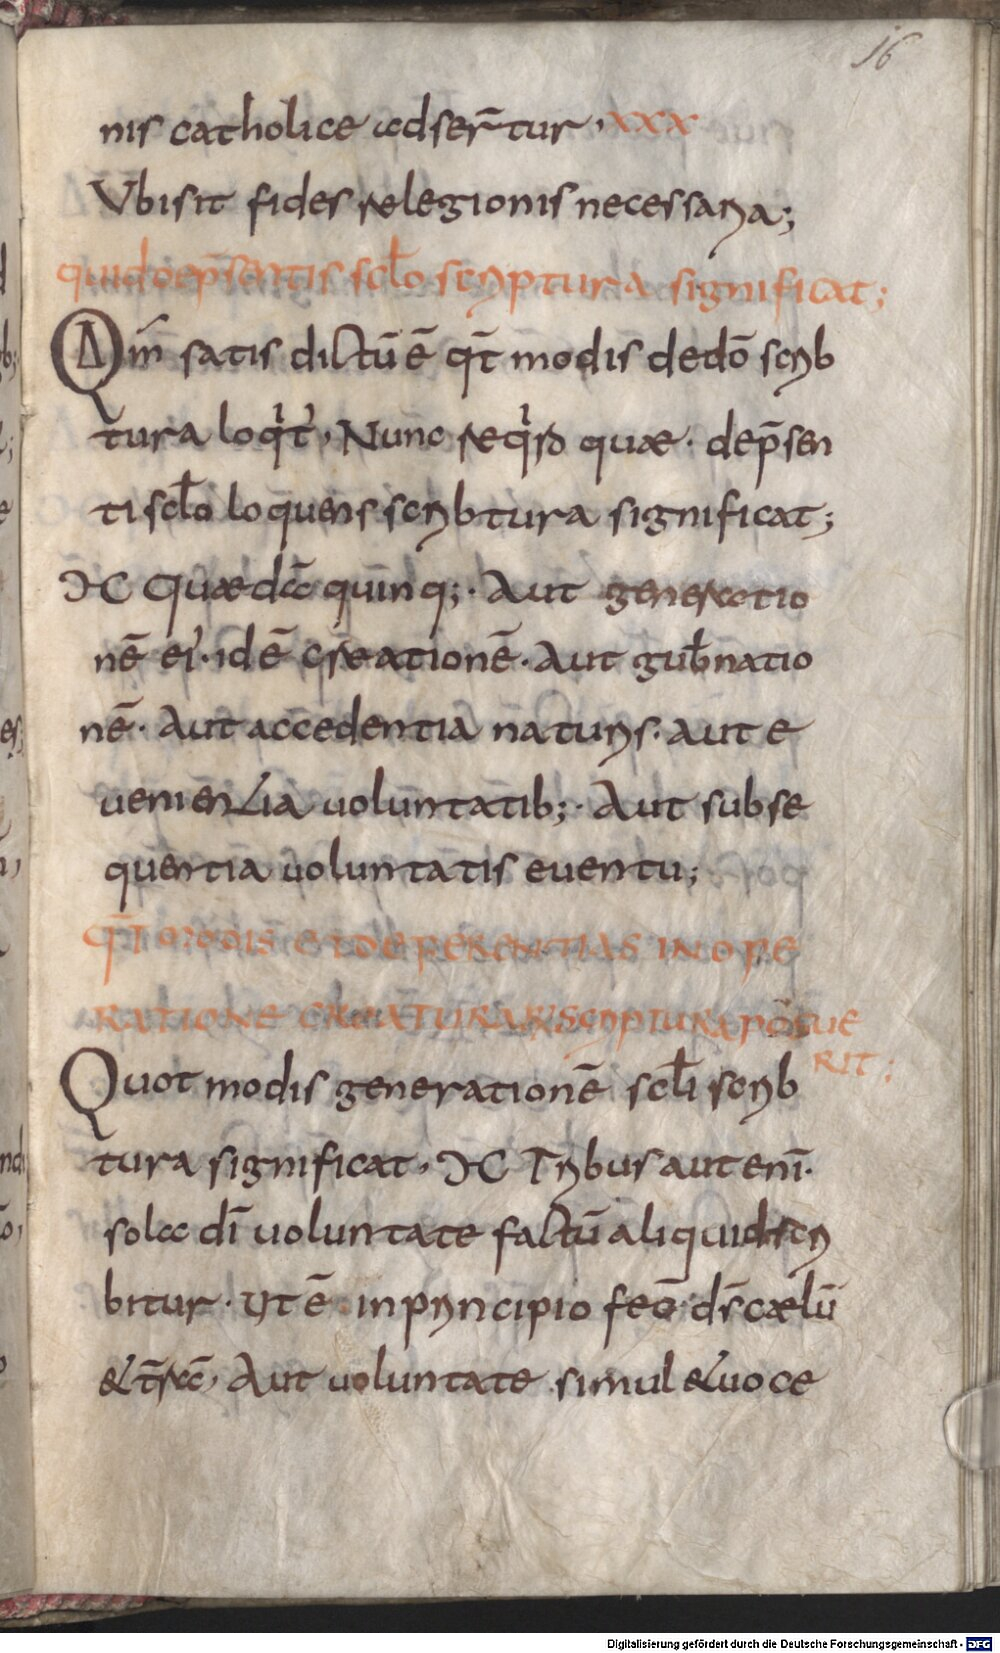 16
nis catholice adser̄tur · xxx
Ubi sit fides relegionis necessaria;
quid de p̄sentis scl̄o scriptura significat;
Qm̄ satis dictū ē qt̄ modis de dō scrib
tura loqt̄, Nunc req̄r̄ quae · de p̄sen
ti scl̄o loquens scribtura significat;
IC Quaedā quinq; · Aut generatio
nē ei · idē creationē · Aut gub̄natio
nē · Aut accedentia naturis · aut e
uenientia voluntatib; · Aut subse
quentia voluntatis euentu;
qt̄ modis
RATIONE CREATURAR scriptura posue
RIT;
Quot modis generationē scl̄i scrib
tura significat, IC Tribus aut enī ·
sola dī uoluntate factū aliquid scri
bitur · Ut ē in principio fec̄ ds̄ caelū
& t̄rā, Aut uoluntate simul & uoce
Digitalisierung gefördert durch die Deutsche Forschungsgemeinschaft - DFG